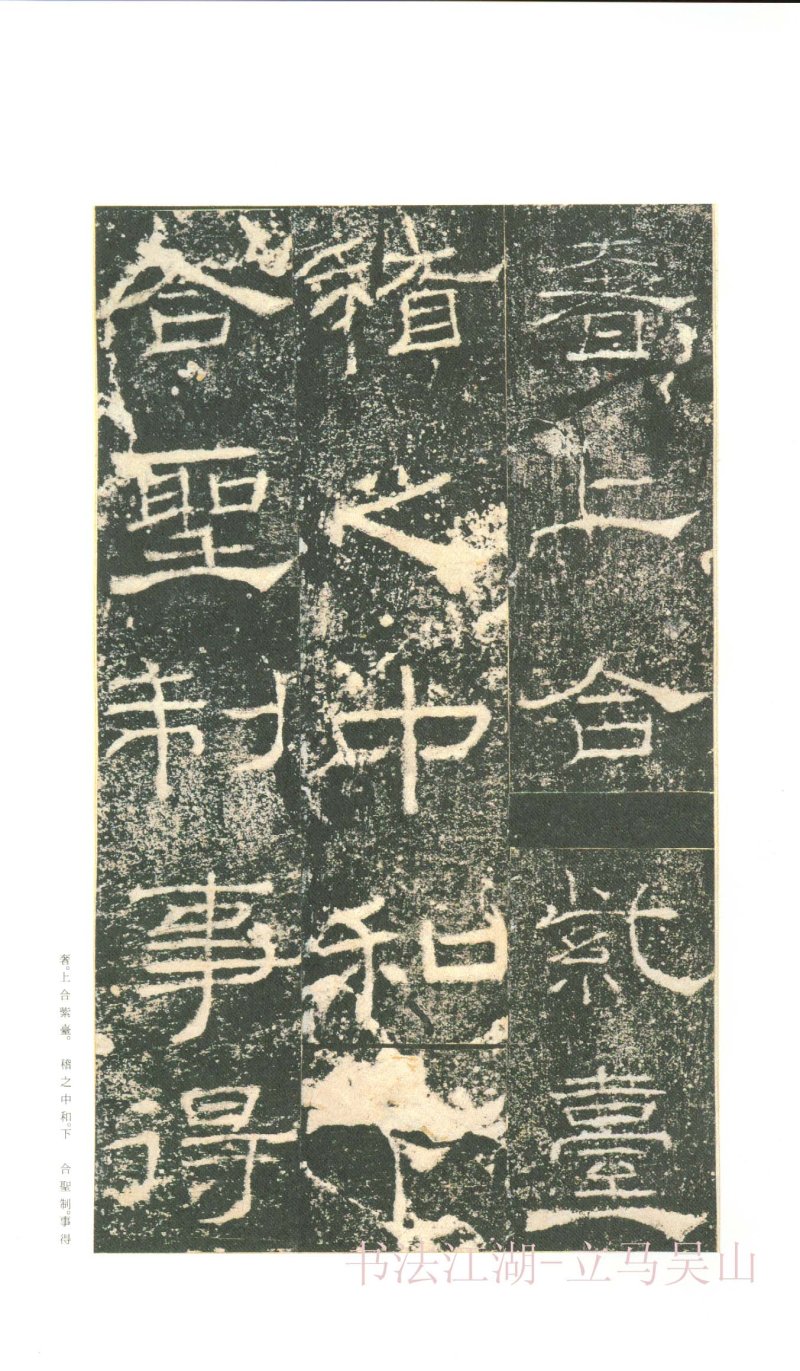 奢上合紫臺
稽之中和下
合聖制事得
奢。上合紫臺。 稽之中和。下 合聖制。事得
书法江湖-立马吴山